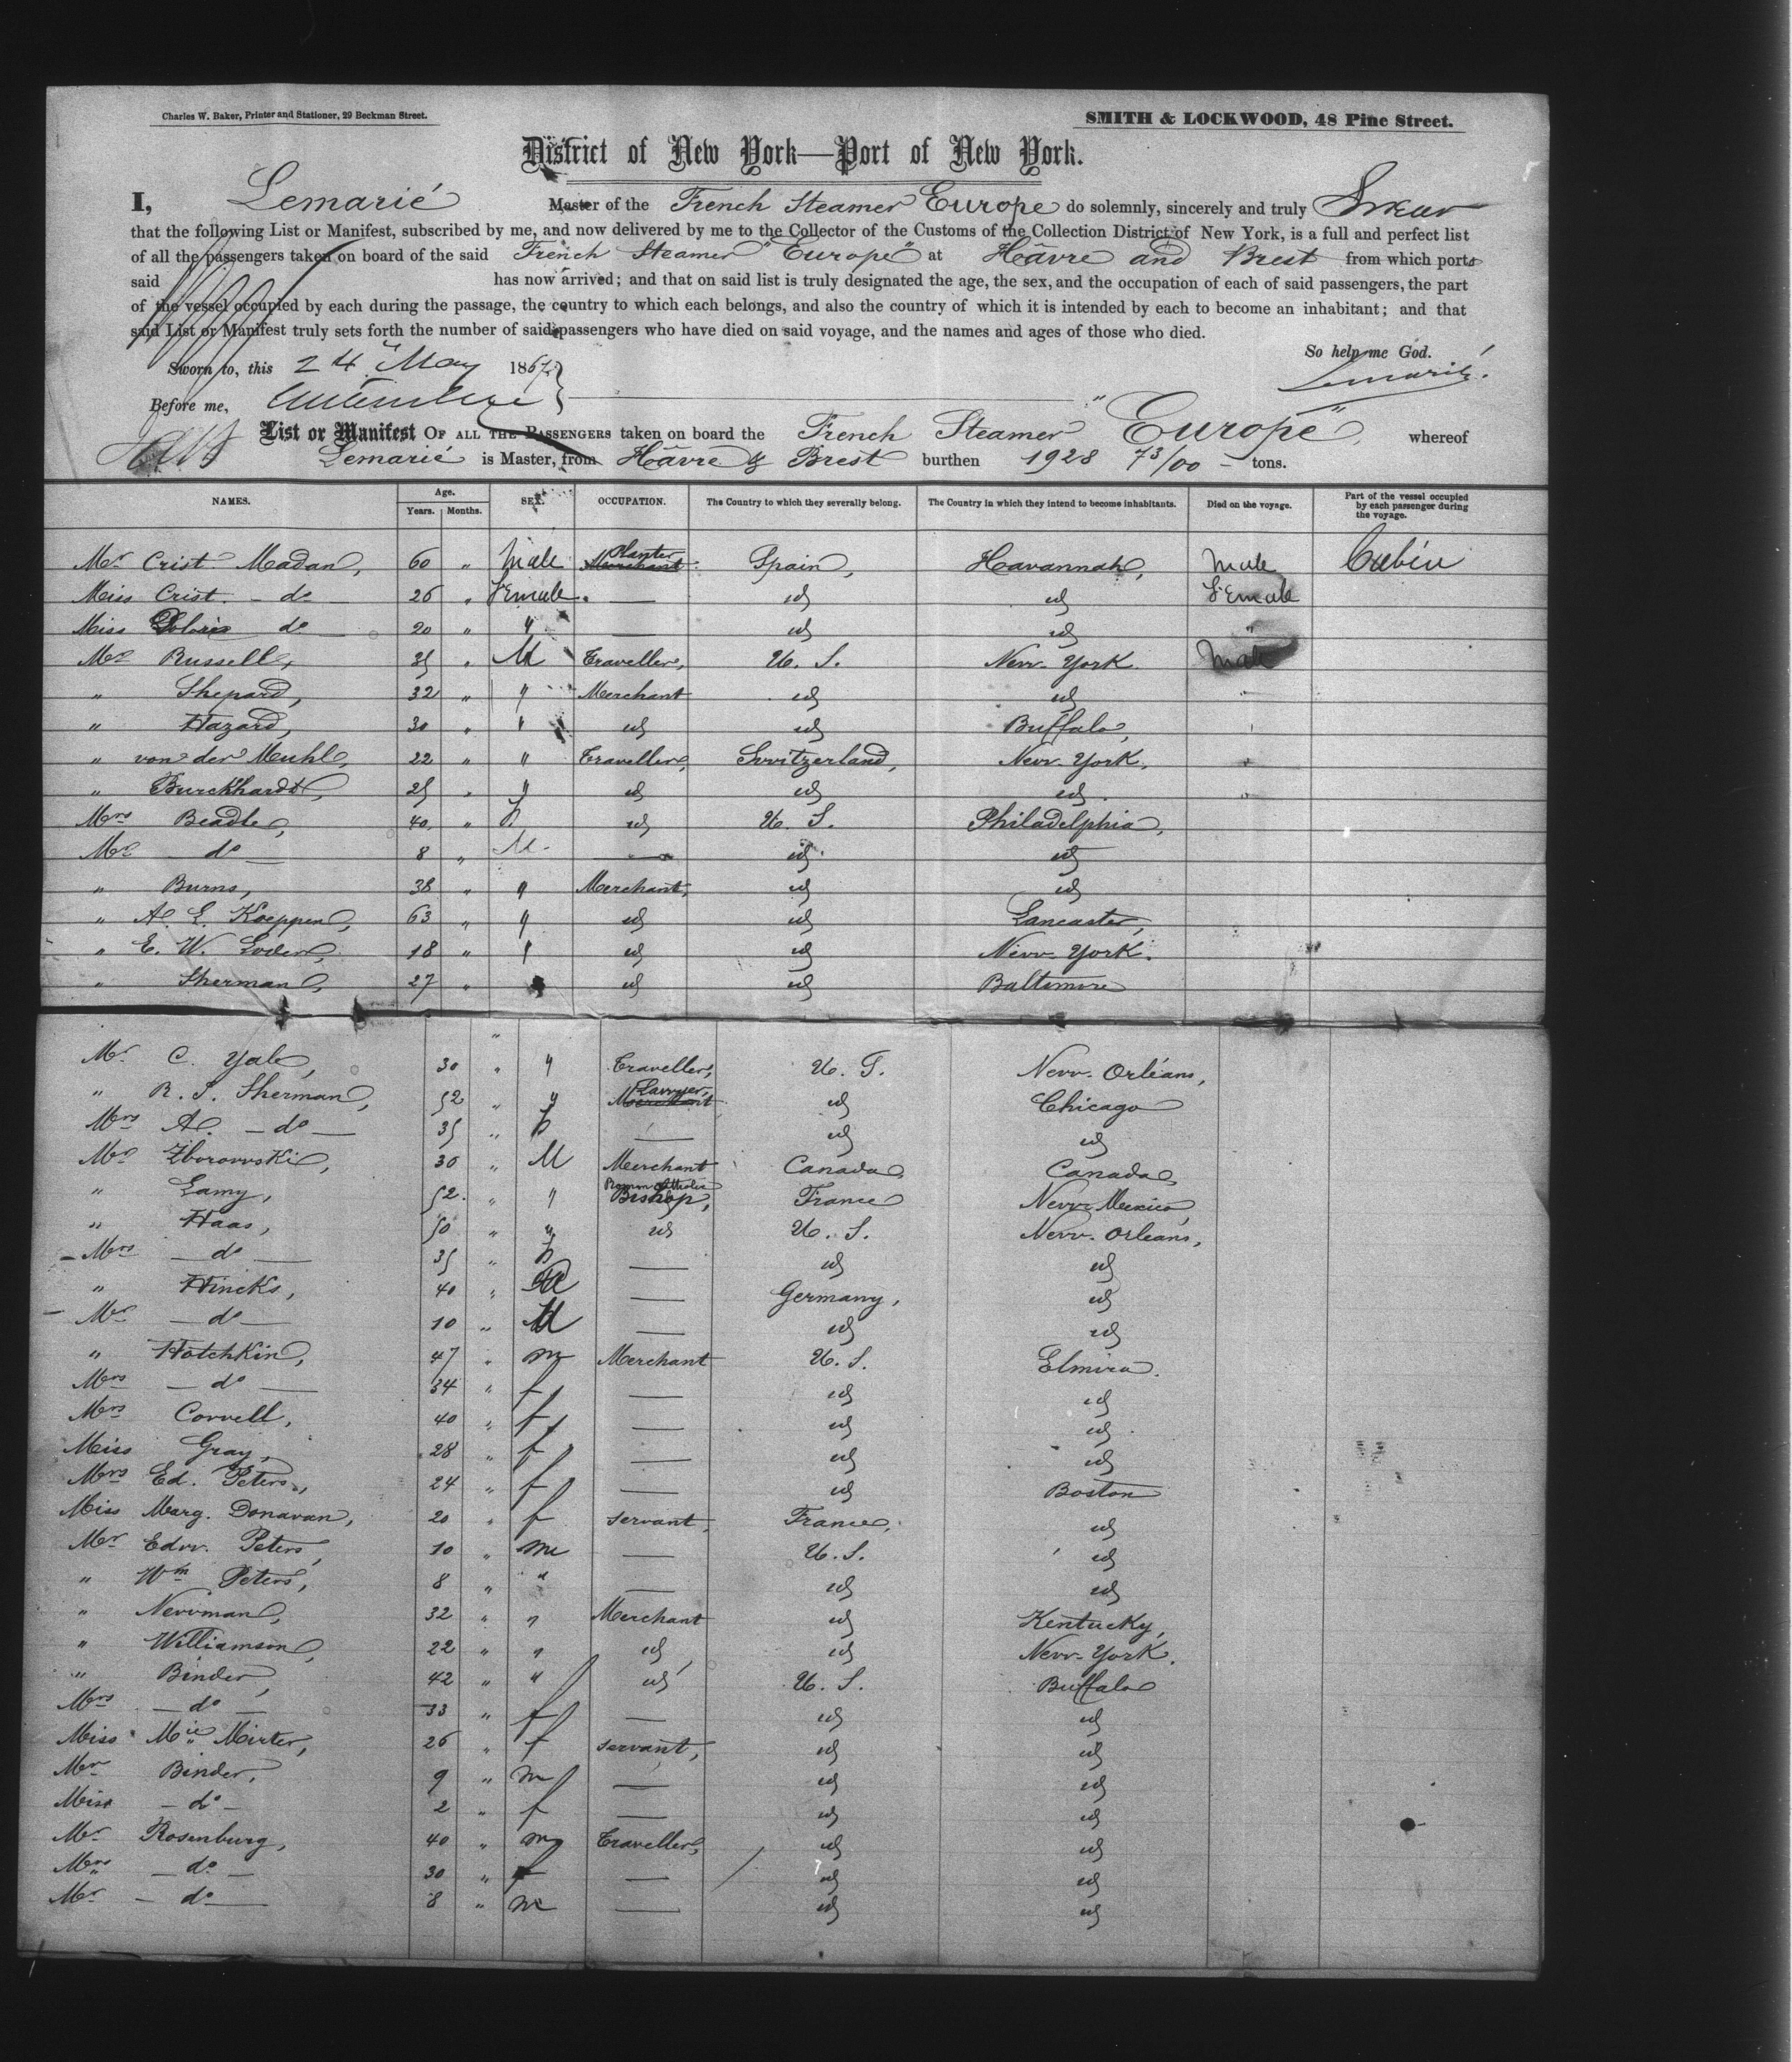 Charles W. Baker, Printer and Stationer, 29 Beekman Street.
SMITH & LOCKWOOD, 48 Pine Street.
District of New York—Port of New York.
I, Lemarié Master of the French Steamer Europe do solemnly, sincerely and truly Swear
that the following List or Manifest, subscribed by me, and now delivered by me to the Collector of the Customs of the Collection District of New York, is a full and perfect list
of all the passengers taken on board of the said French Steamer "Europe" at Hâvre and Brest from which ports
said has now arrived; and that on said list is truly designated the age, the sex, and the occupation of each of said passengers, the part
of the vessel occupied by each during the passage, the country to which each belongs, and also the country of which it is intended by each to become an inhabitant; and that
said List or Manifest truly sets forth the number of said passengers who have died on said voyage, and the names and ages of those who died.
So help me God.
Sworn to, this 24 May 1867
Lemarié
Before me,
List or Manifest OF ALL THE PASSENGERS taken on board the French Steamer "Europe" whereof
Lemarié is Master, from Hâvre & Brest burthen 1928 73/00 tons.
NAMES. Age. Years. Months. SEX. OCCUPATION. The Country to which they severally belong. The Country in which they intend to become inhabitants. Died on the voyage. Part of the vessel occupied by each passenger during the voyage.
Mr Crist. Madan, 60 " Male Merchant Planter Spain, Havannah, Male Cabin
Miss Crist. - do - 26 " Female — id id Female
Miss Dolores do - 20 " " — id id "
Mr Russell, 35 " M Traveller, U. S. New-York. Male
" Shepard, 32 " " Merchant id id
" Hazard, 30 " " id id Buffalo,
" von der Muhl, 22 " " Traveller, Switzerland, New-York,
" Burckhardt, 25 " " id id id
Mrs Beadle, 40 " f. id U. S. Philadelphia,
Mr - do - 8 " M — id id
" Burns, 38 " " Merchant, id id
" A. L. Koeppen, 63 " " id id Lancaster,
" E. W. 18 " " id id New-York.
" Sherman, 27 " id id Baltimore
Mr C. Yale, 30 " " Traveller, U. S. New-Orléans,
" R. S. Sherman, 52 " " Merchant Lawyer, id Chicago
Mrs A. - do - 35 " f — id id
Mr Zborowski, 36 " M Merchant Canada, Canada,
" Lamy, 52 " " Roman Catholic Bishop, France New-Mexico,
" Haas, 50 " " id U. S. New-Orléans,
- Mrs - do - 35 " f — id id
" Hincks, 40 " — Germany, id
- Mr - do - 10 " M — id id
" Hotchkin, 47 " m Merchant U. S. Elmira.
Mrs - do - 34 " f — id id
Mrs Corvell, 40 " f — id id
Miss Gray, 28 " f — id id
Mrs Ed. Peters, 24 " f — id Boston
Miss Marg. Donavan, 20 " f servant, France, id
Mr Edw. Peters, 10 " m — U. S. id
" Wm Peters, 8 " " — id id
" Newman, 32 " " Merchant id Kentucky,
" Williamson, 22 " " id id New-York.
" Binder, 42 " " id U. S. Buffalo
Mrs - do - 33 " f — id id
Miss Mie Mirter, 26 " f servant, id id
Mr Binder, 9 " m — id id
Miss - do - 2 " f — id id
Mr Rosenburg, 40 " m Traveller, id id
Mrs - do - 30 " f — id id
Mr - do - 8 " m — id id